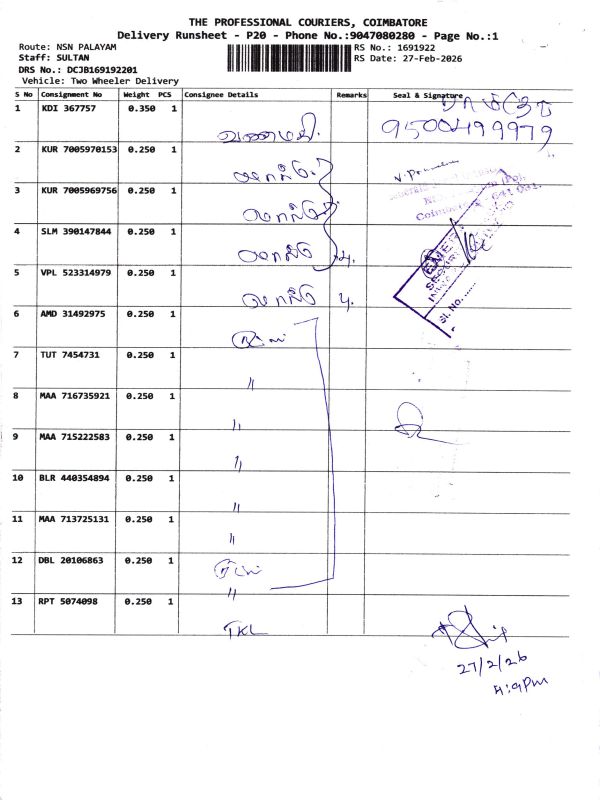 THE PROFESSIONAL COURIERS, COIMBATORE
Delivery Runsheet - P20 - Phone No.:9047080280 - Page No.:1
Route: NSN PALAYAM
RS No.: 1691922
Staff: SULTAN
RS Date: 27-Feb-2026
DRS No.: DCJB169192201
Vehicle: Two Wheeler Delivery
S No Consignment No Weight PCS Consignee Details Remarks Seal & Signature
1 KDI 367757 0.350 1
9500499979
2 KUR 7005970153 0.250 1
3 KUR 7005969756 0.250 1
4 SLM 390147844 0.250 1
5 VPL 523314979 0.250 1
Sl. No.
6 AMD 31492975 0.250 1
7 TUT 7454731 0.250 1
"
8 MAA 716735921 0.250 1
"
9 MAA 715222583 0.250 1
"
10 BLR 440354894 0.250 1
"
11 MAA 713725131 0.250 1
"
12 DBL 20106863 0.250 1
"
13 RPT 5074098 0.250 1
TKL
27/2/26
4:9PM